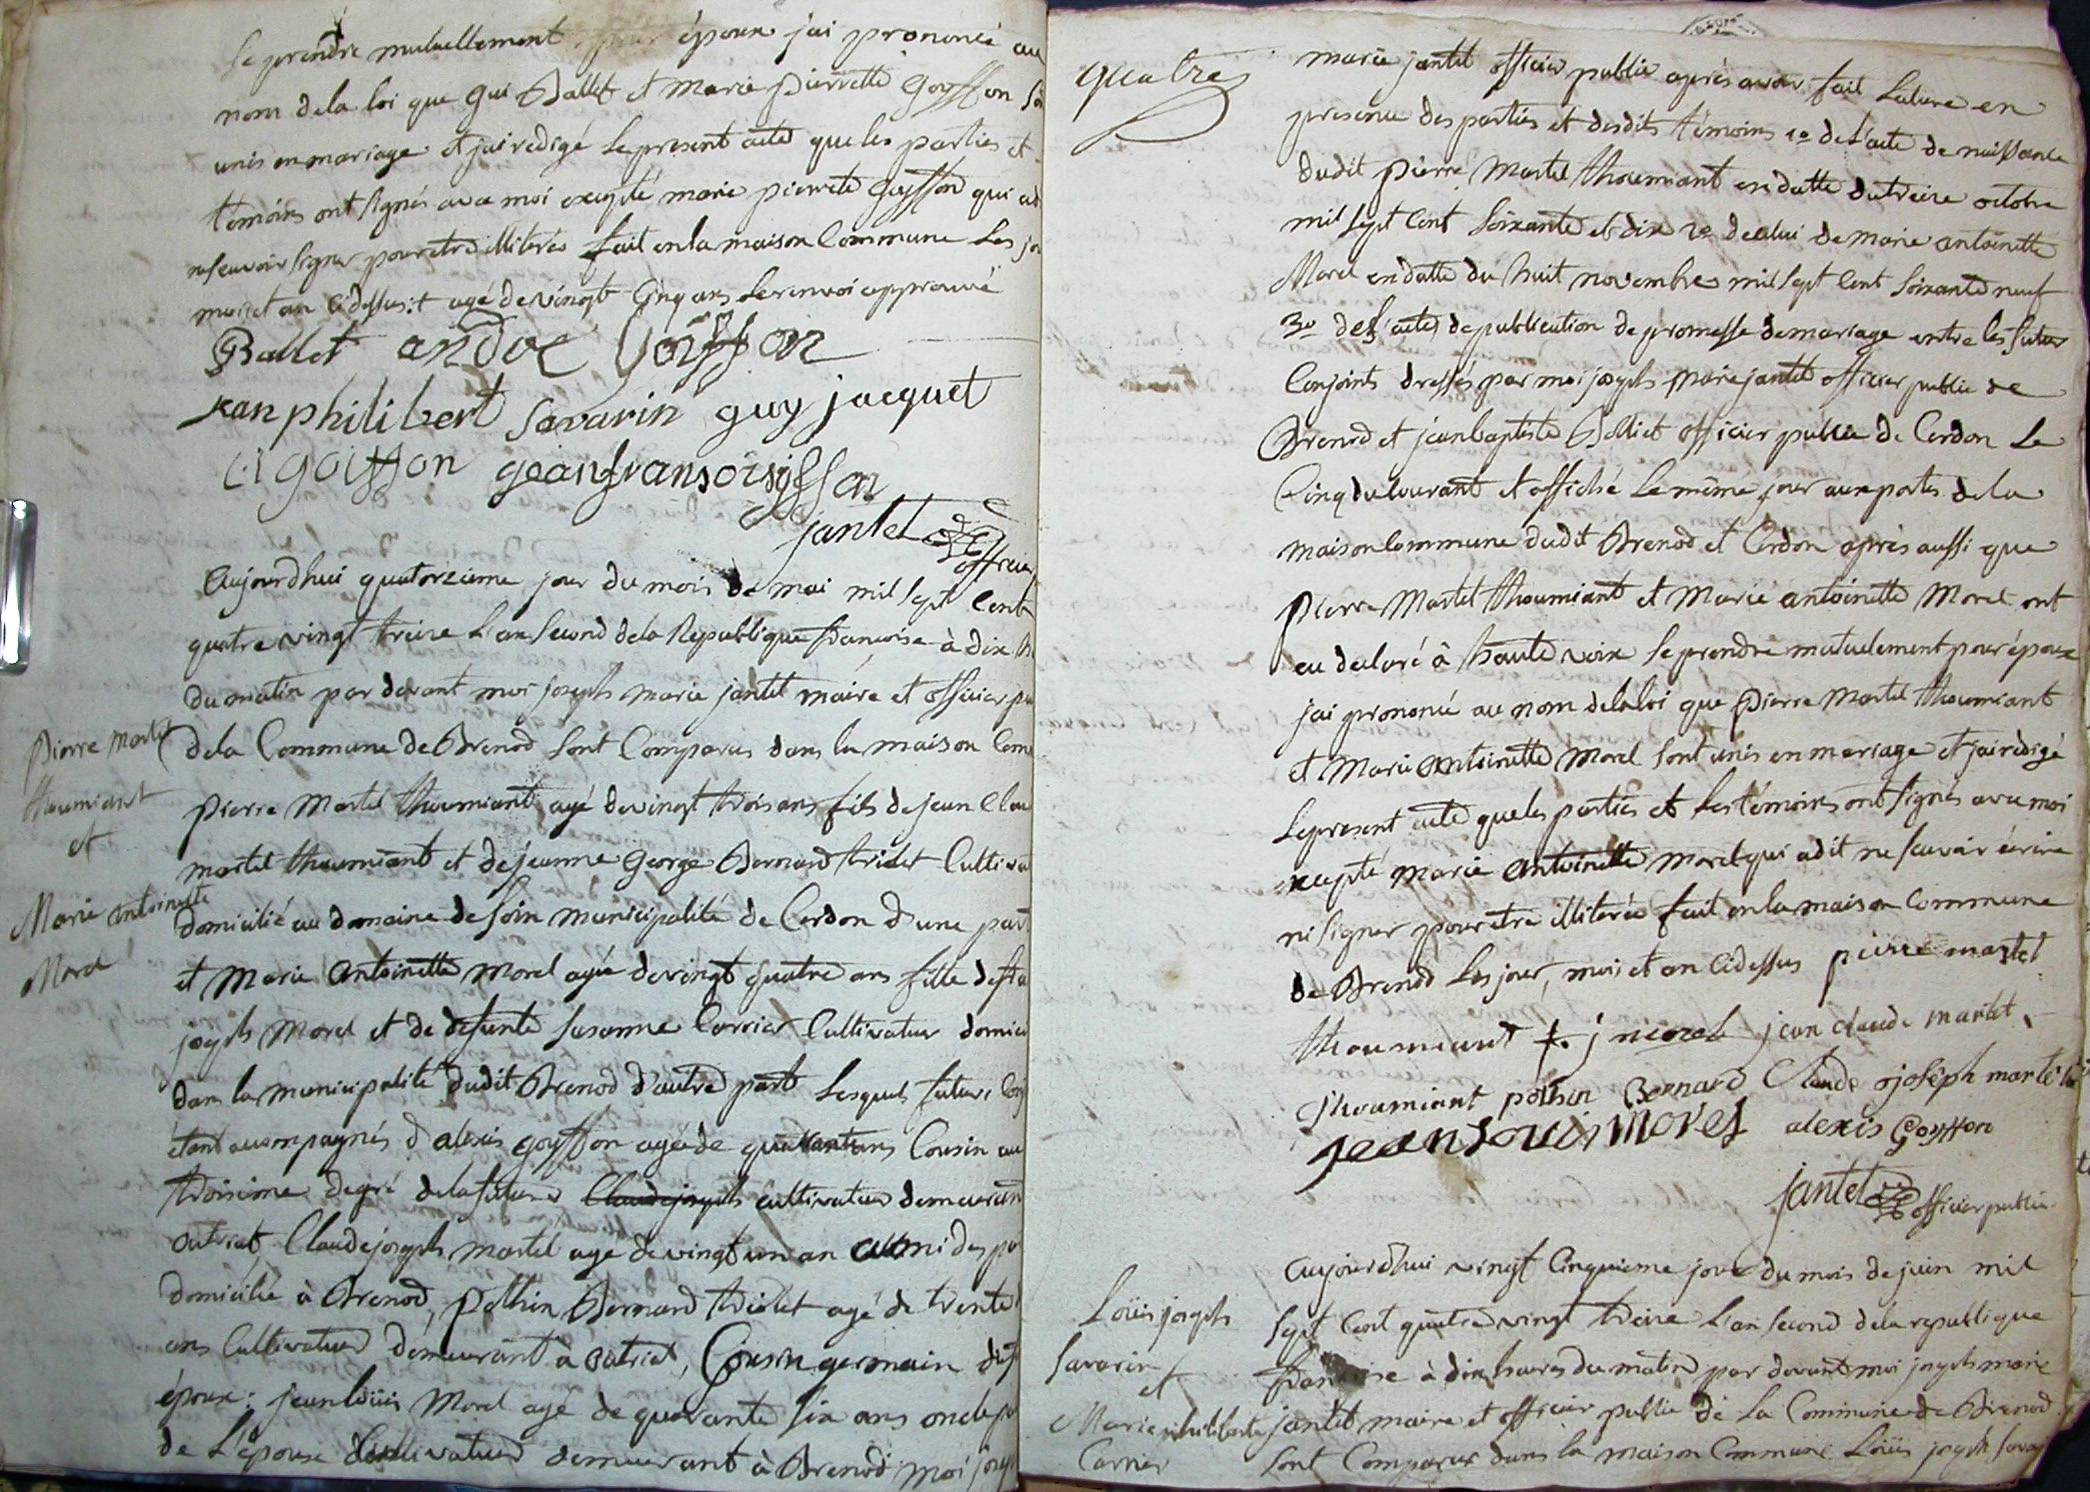 se prendre mutuellement pour époux j'ai prononcé au
nom de la loi que gui Ballet et Marie pierrette goyffon
unis en mariage et jai redigé le present acte que les parties et
témoins ont signés avec moi excepté marie pierrete goyffon qui
ne scavoir signer pour etre illiterée fait en la maison Commune les
mois et an cidessus: et agé de vingt cinq ans le renvoi approuvé
Ballet andré Goiffon
jean philibert savarin guy jacquet
goiffon gean fransois
jantet officier
aujourdhui quatorzieme jour du mois de mai mil sept cent
quatre vingt treize l'an second de la Republique francoise à dix
du matin par devant moi joseph marie jantet maire et officier
de la Commune de Brenod sont Comparus dans la maison
pierre martel thoumiant agé de vingt trois ans fils de jean
martel thoumiant et de jeanne george Bernard triolet
domicilié au domaine de municipalité de Cerdon d'une part
et Marie Antoinette morel agée de vingt quatre ans fille
joseph Morel et de defunte susanne Carrier Cultivateur
dans la municipalité dudit Brenod d'autre part lesquels futurs
étant accompagnés d'alexis goyffon agé de quarante ans Cousin au
troisieme degré de la future Claude joseph cultivateur demeurant
outriat, Claude joseph martel age de vingt un an ami des
domicilié à Brenod, pothin Bernard triolet agé de trente
ans Cultivateur demeurant à outriat, Cousin germain
époux: jean louis Morel agé de quarante six ans oncle
de L'épouse Cultivateur demeurant à Brenod: moi
pierre martel
thoumiant
et
Marie antoinette
Morel
quatre
marie jantet officier public après avoir fait lecture en
presence des parties et desdits témoins 1o de l'acte de naissance
dudit pierre Martel thoumiant en datte du treize octobre
mil sept cent soixante et dix 2o de celui de marie antoinette
Morel en datte du huit novembre mil sept cent soixante neuf
3o de l'acte de publication de promesse de mariage entre les futurs
Conjoints dressés par moi joseph marie jantet officier public de
Brenod et jean baptiste officier public de Cerdon le
Cinq du courant et affiché le même jour aux portes de la
maison Commune dudit Brenod et Cerdon après aussi que
pierre Martel thoumiant et Marie antoinette Morel ont
eu declaré à haute voix se prendre mutuelement pour époux
jai prononcé au nom de la loi que pierre martel thoumiant
et Marie Antoinette Morel sont unis en mariage et jai rédigé
le present acte que les parties et les témoins ont signés avec moi
excepté marie Antoinette morel qui a dit ne scavoir écrire
ni signer pour etre illiterée fait en la maison Commune
de Brenod les jour, mois et an cidessus pierre martel
thoumiant j morel jean claude martel
thoumiant pothin Bernard Claude joseph martel
jean Louis Morel alexis Goyffon
jantet officier public
Louis joseph
Savarin
et
Marie philiberte
Carrier
aujourdhui vingt cinquieme jour du mois de juin mil
sept cent quatre vingt treize l'an second de la republique
francoise à dix heures du matin par devant moi joseph marie
jantet maire et officier public de la Commune de Brenod
sont Comparus dans la maison Commune Louis joseph